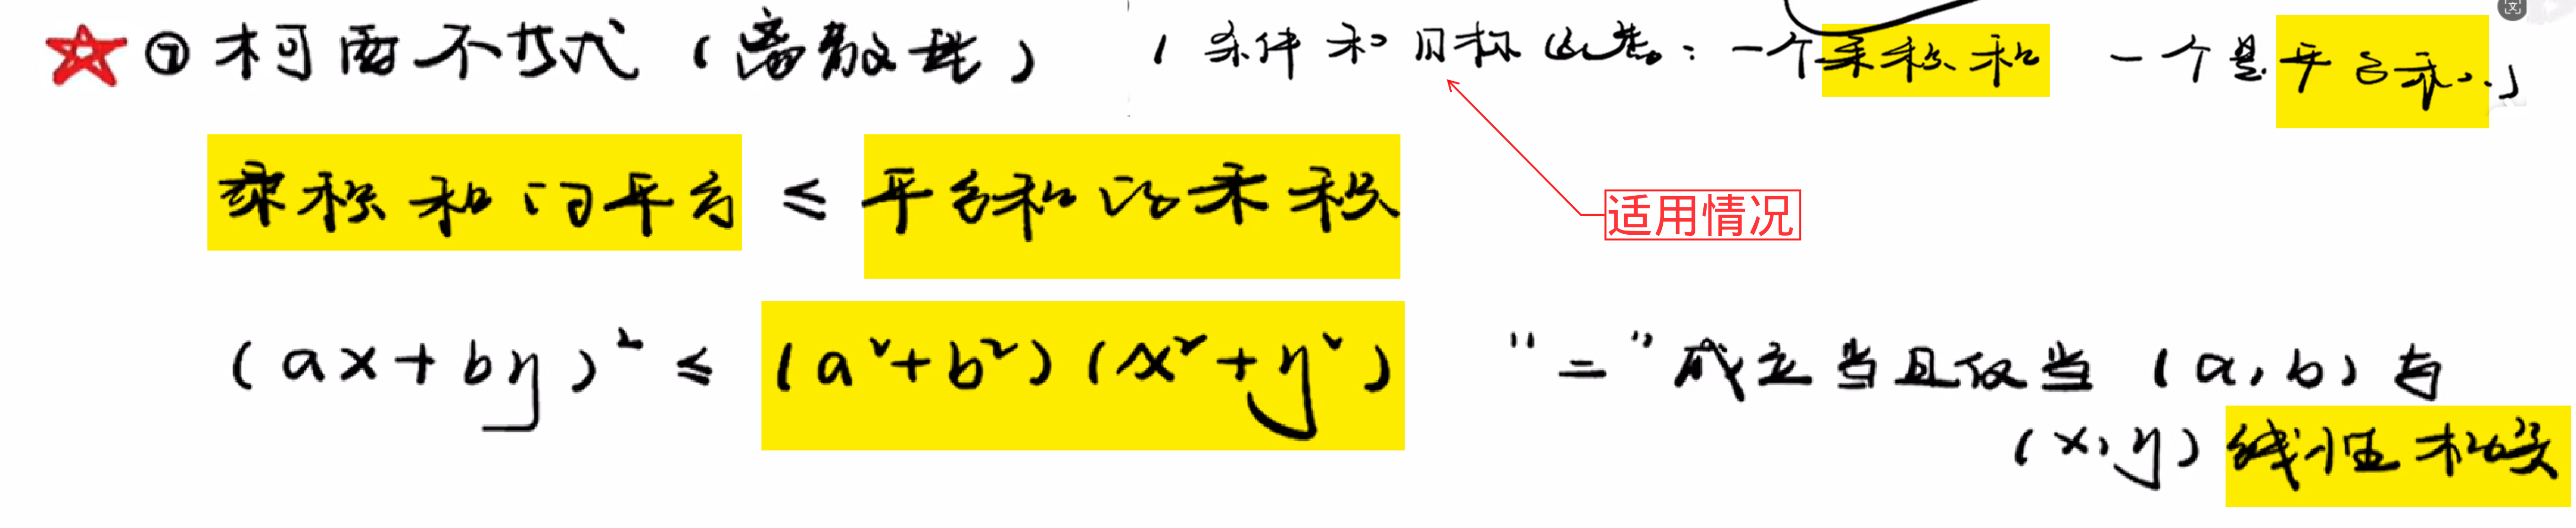 ⑦ 柯西不等式（离散型）（条件和目标必然：一个乘积和 一个是平方和.）
适用情况
乘积和的平方 ≤ 平方和的乘积
(ax+by)² ≤ (a²+b²)(x²+y²) "="成立当且仅当 (a,b) 与
(x,y) 线性相关